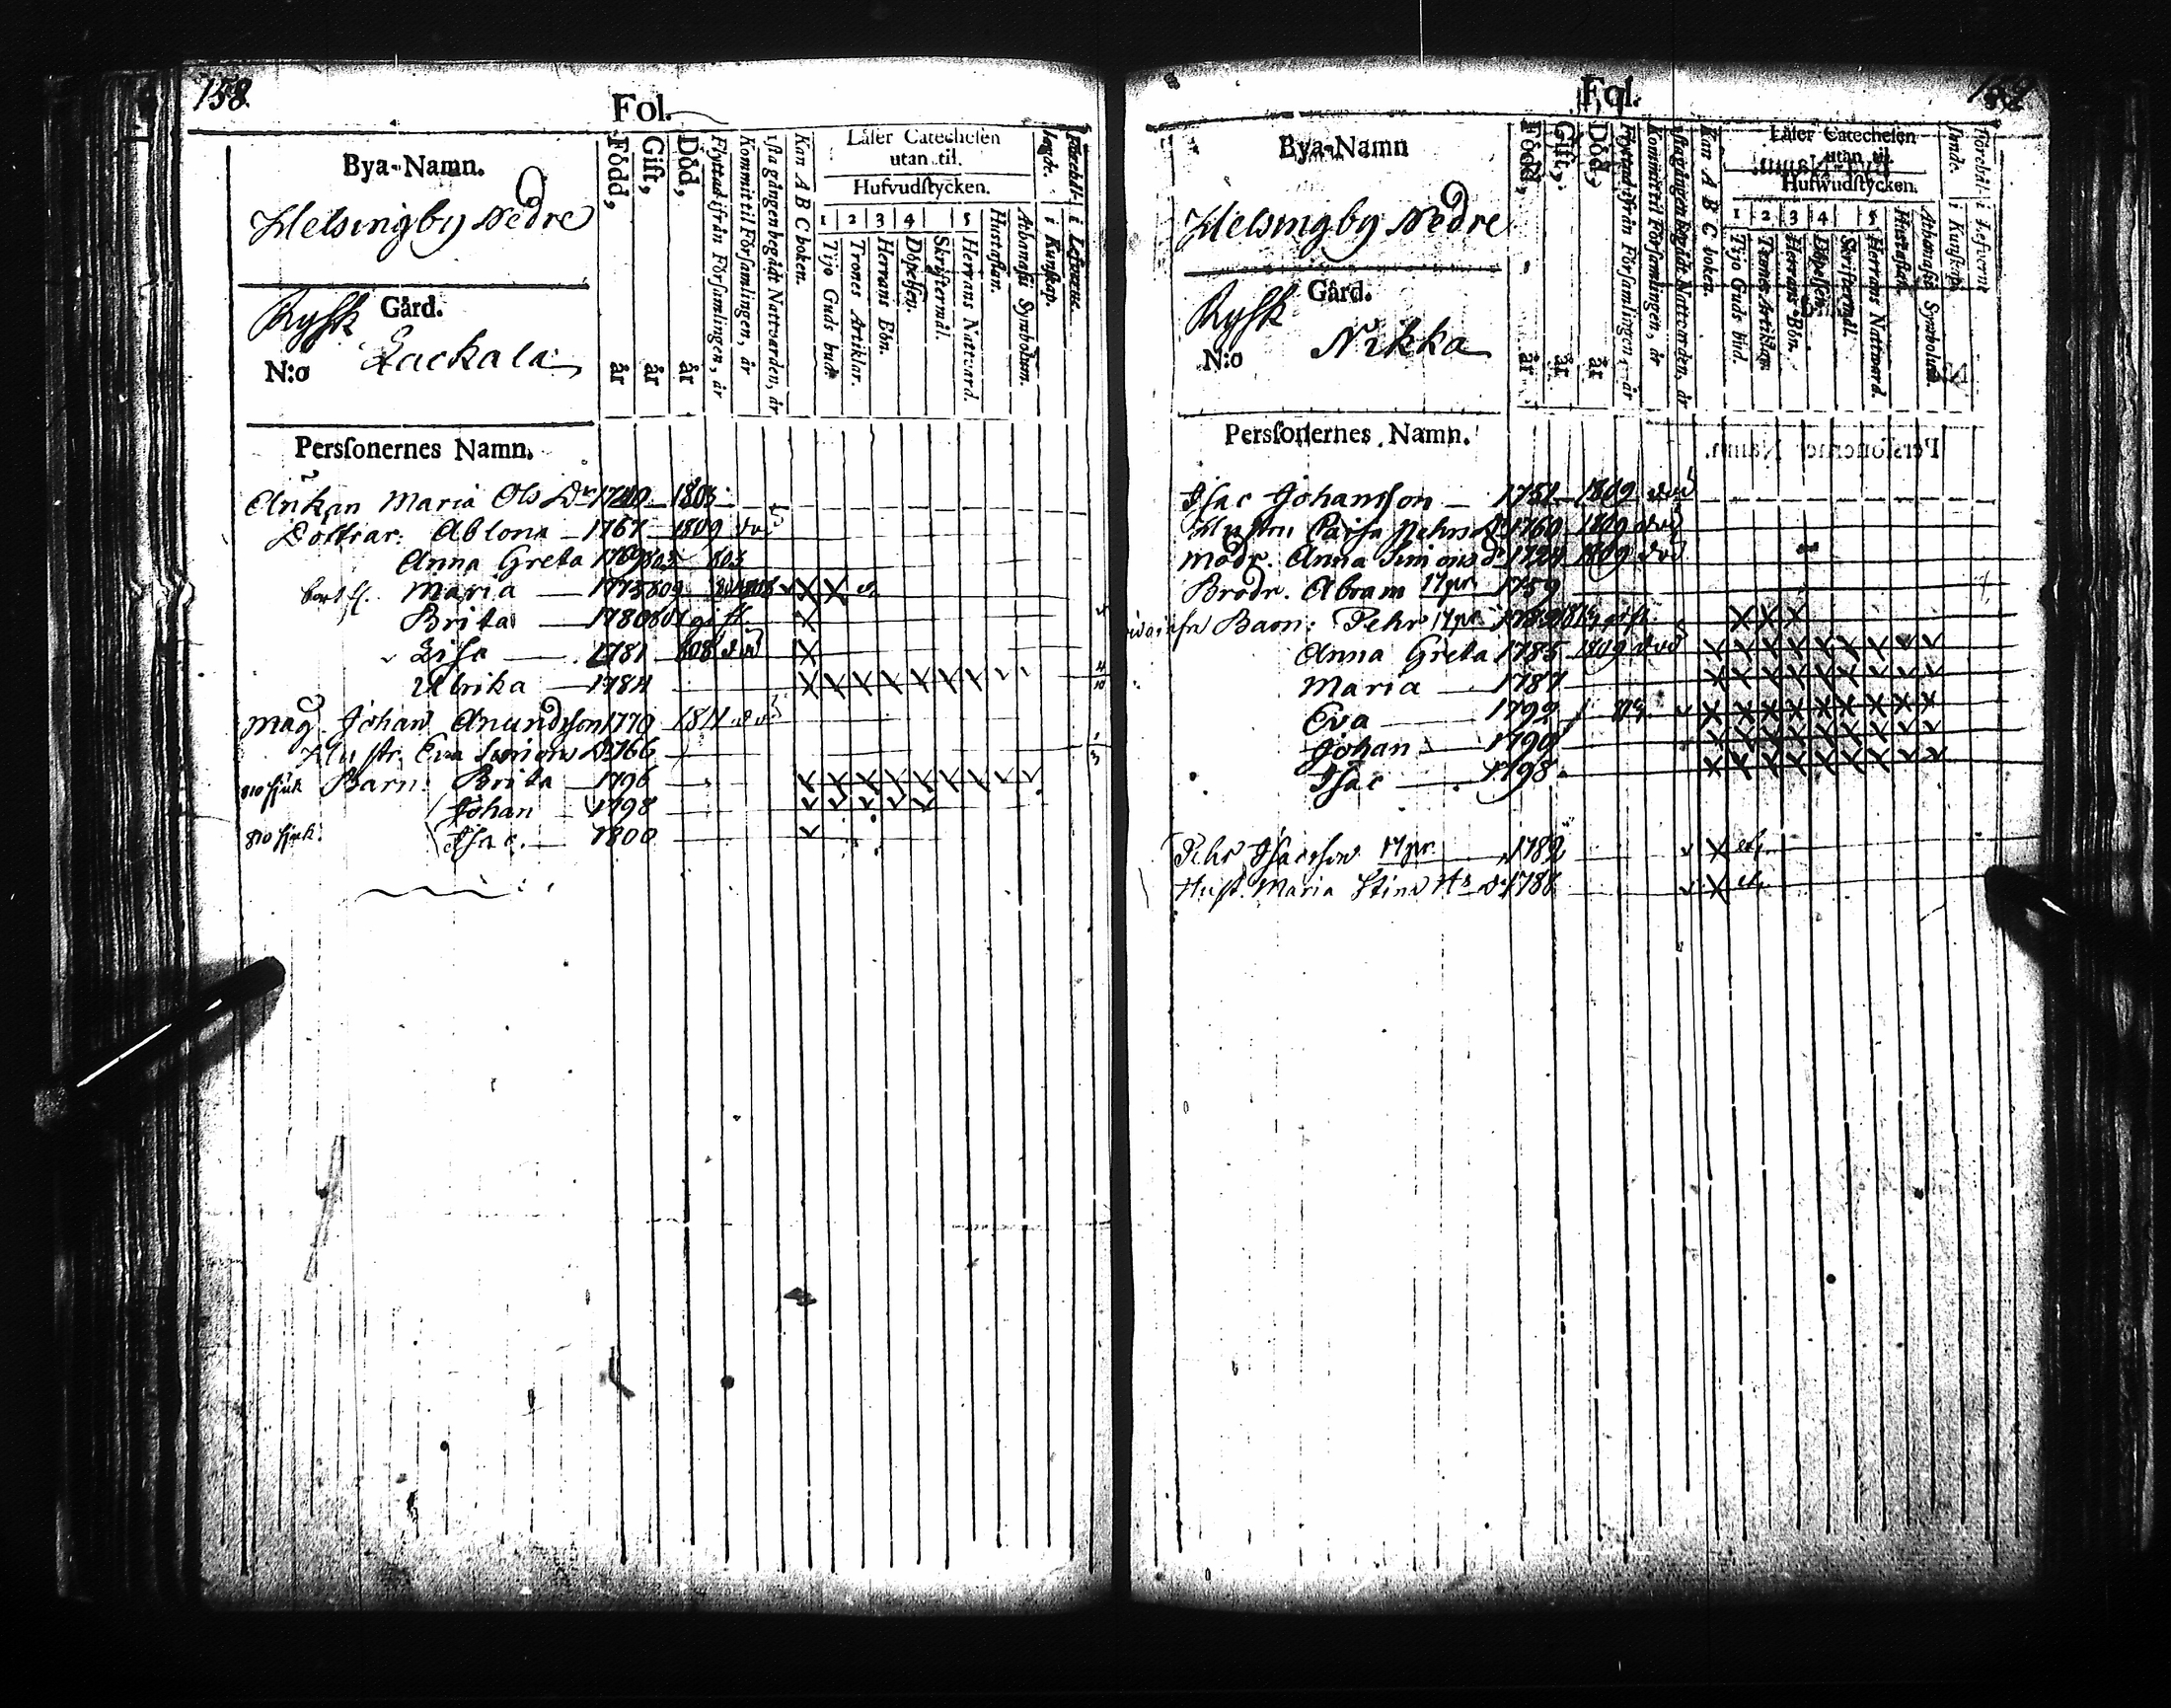 158.
Fol.
Bya-Namn.
Helsingby Nedre
Rysk Gård.
N:o Lackala
Född, år
Gift, år
Död, år
Flyttad ifrån Församlingen, år
Kommit til Församlingen, år
1sta gången begådt Nattvarden, år
Kan A B C boken.
Läser Catechesen
utan til.
Hufvudstycken.
1 2 3 4 5
Tijo Guds bud.
Trones Artiklar.
Herrans Bön.
Döpelsen.
Skriftermål.
Herrans Nattvard.
Hustaflan.
Athanasii Symbolum.
i Kunskap.
i Lefverne.
Personernes Namn.
Änkan Maria Ols Dr 1740 1803
Döttrar: Ablona 1767 1809 död
Anna Greta 1769 803 803
Maria 1775 809
Brita 1780 807 gift.
Lisa 1781 808 död
Ulrika 1784
Mag Johan Anundsson 1770 1811 död
Hustr. Eva Simons D 1766
810 sjuk Barn: Brita 1796
Johan 1798
810 sjuk. Isac. 1800
Fol.
Bya-Namn
Helsingby Nedre
Rysk Gård.
N:o Nikka
Född, år
Gift, år
Död, år
Flyttad ifrån Församlingen, år
Kommit til Församlingen, år
1sta gången begådt Nattvarden, år
Kan A B C boken.
Läser Catechesen
utan til.
Hufwudstycken.
1 2 3 4 5
Tijo Guds bud.
Trones Artiklar.
Herrans Bön.
Döpelsen.
Skriftermål.
Herrans Nattvard.
Hustaflan.
Athanasii Symbolum.
i Kunskap
i Lefverne
Personernes Namn.
Isac Johansson 1751 1809 död
Hustru Caisa Pehrs D 1760 1809 död
Modr. Anna Simons d 1724 1809 död
Brodr. Abram 17pr 1759
Barn: Pehr 17pr 1782 gift
Anna Greta 1785 1809 död
Maria 1787
Eva 1792
Johan 1790
Isac 1798
Pehr Isacsson 17pr 1782
Hust. Maria Stina 1786